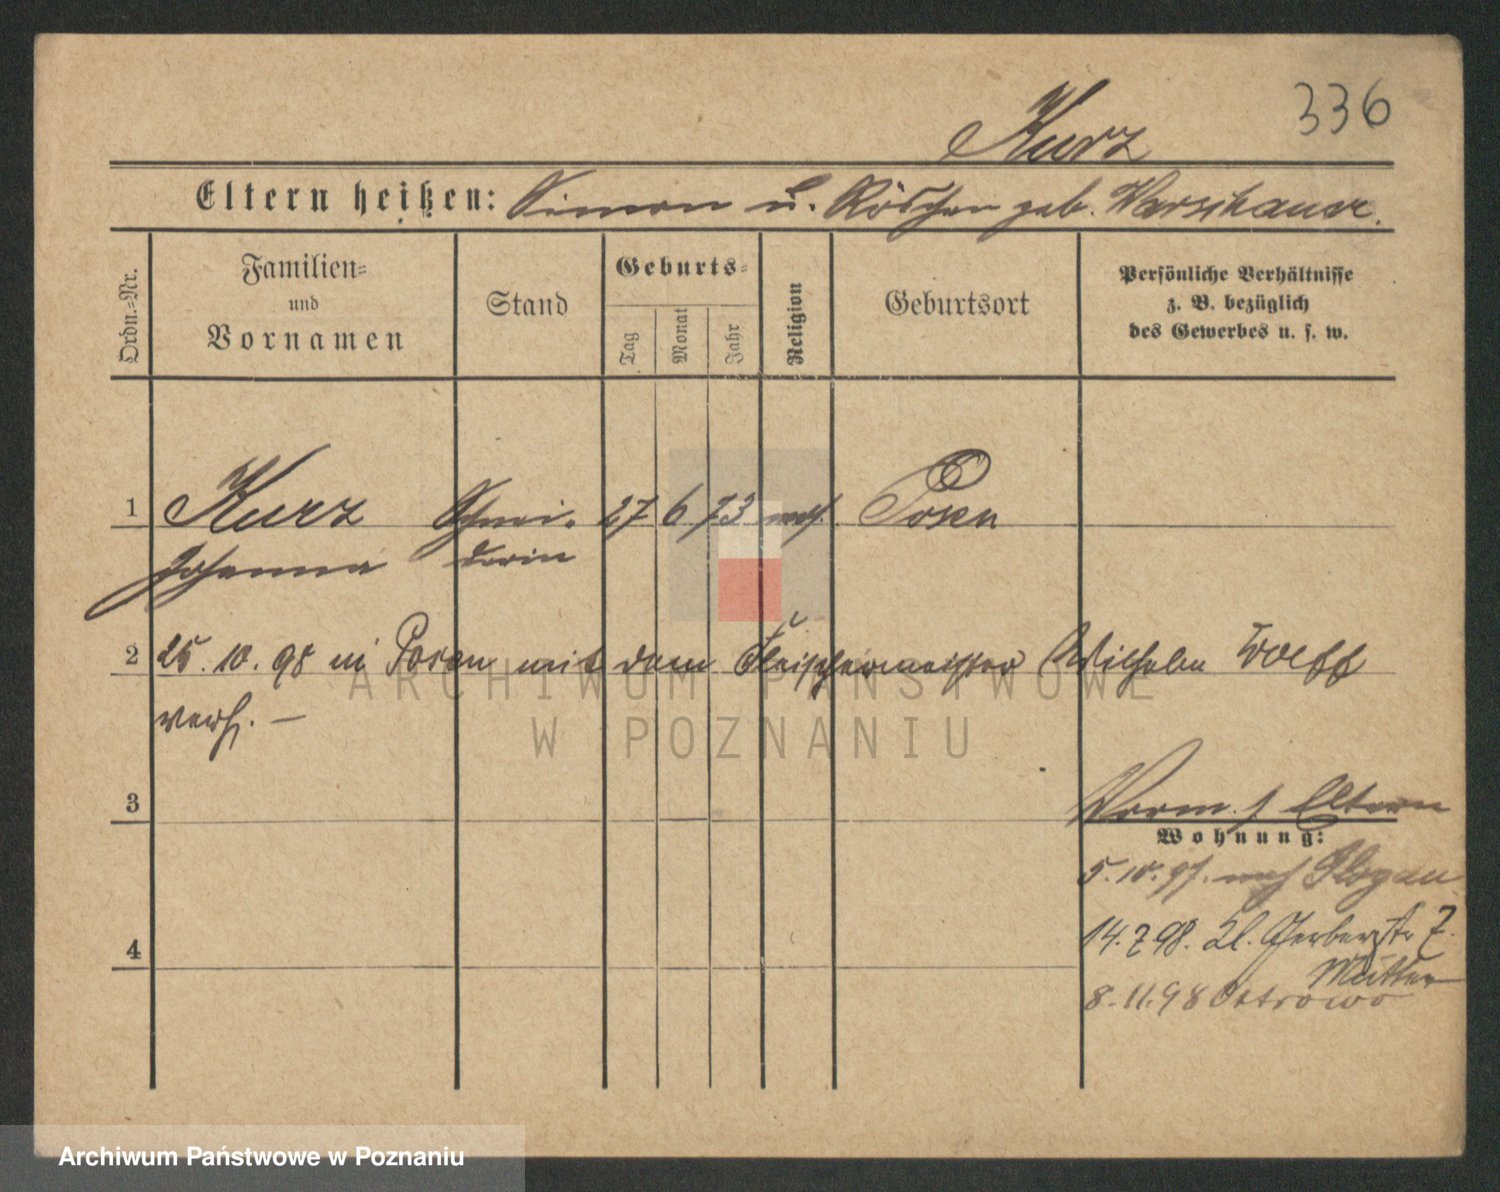 336
Kurz
Eltern heißen: Simon u. Röschen geb. Warschauer.
Ordn.=Nr.
Familien=
und
Vornamen
Stand
Geburts=
Tag
Monat
Jahr
Religion
Geburtsort
Persönliche Verhältnisse
z. B. bezüglich
des Gewerbes u. s. w.
1 Kurz Schnei- 27 6 73 mos. Posen
Johanna derin
2 25. 10. 98 in Posen mit dem Fleischermeister Wilhelm Wolff
verh. —
3
Vorm. s. Eltern
Wohnung:
5. 10. 97. nach Glogau
14. 7 98. Kl. Gerberstr 7.
Mutter
8. 11. 98 Ostrowo
4
ARCHIWUM PAŃSTWOWE
W POZNANIU
Archiwum Państwowe w Poznaniu